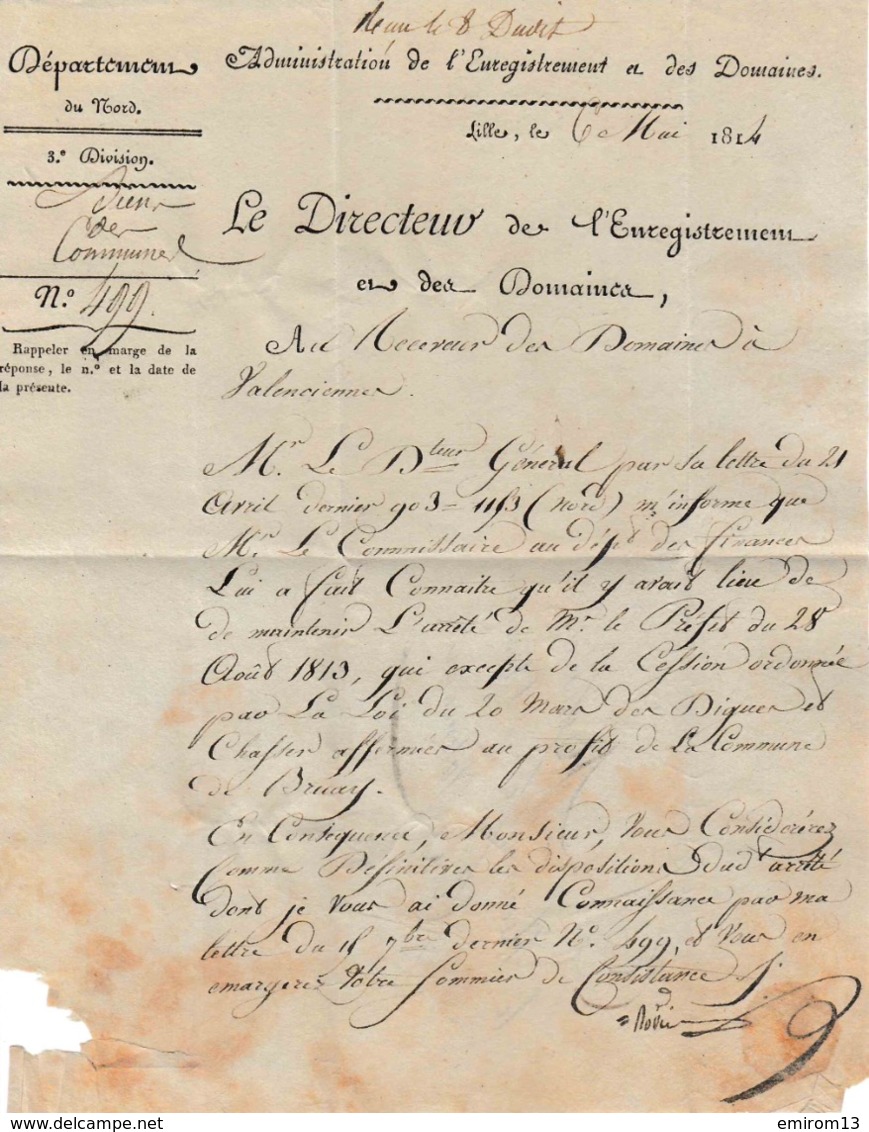 Reçu le 8 Dudit
Administration de l'Enregistrement et des Domaines.
Département
du Nord.
3.e Division.
Biens
des
Communes
N.o 499.
Rappeler en marge de la
réponse, le n.o et la date de
la présente.
Lille, le 6 Mai 1814
Le Directeur de l'Enregistrement
et des Domaines,
Au Receveur des Domaines à
Valenciennes.
Mr. Le Dteur Général par sa lettre du 21
Avril dernier 903 = (Nord) m'informe que
Mr. Le Commissaire au dépt des finances
Lui a fait Connaitre qu'il y avait lieu de
de maintenir L'arrêté de Mr. le Préfet du 28
Août 1813, qui excepte de la Cession ordonnée
par La Loi du 20 Mars des Digues et
Chasses affermées au profit de La Commune
de Bruay.
En Consequence, Monsieur, Vous Considérérez
Comme Déffinitives les dispositions dudt arrêté
dont je Vous ai donné Connaissance par ma
lettre du 15 7bre dernier No. 499, et Vous en
emargerez Votre Sommier de Consistance ./.
emirom13